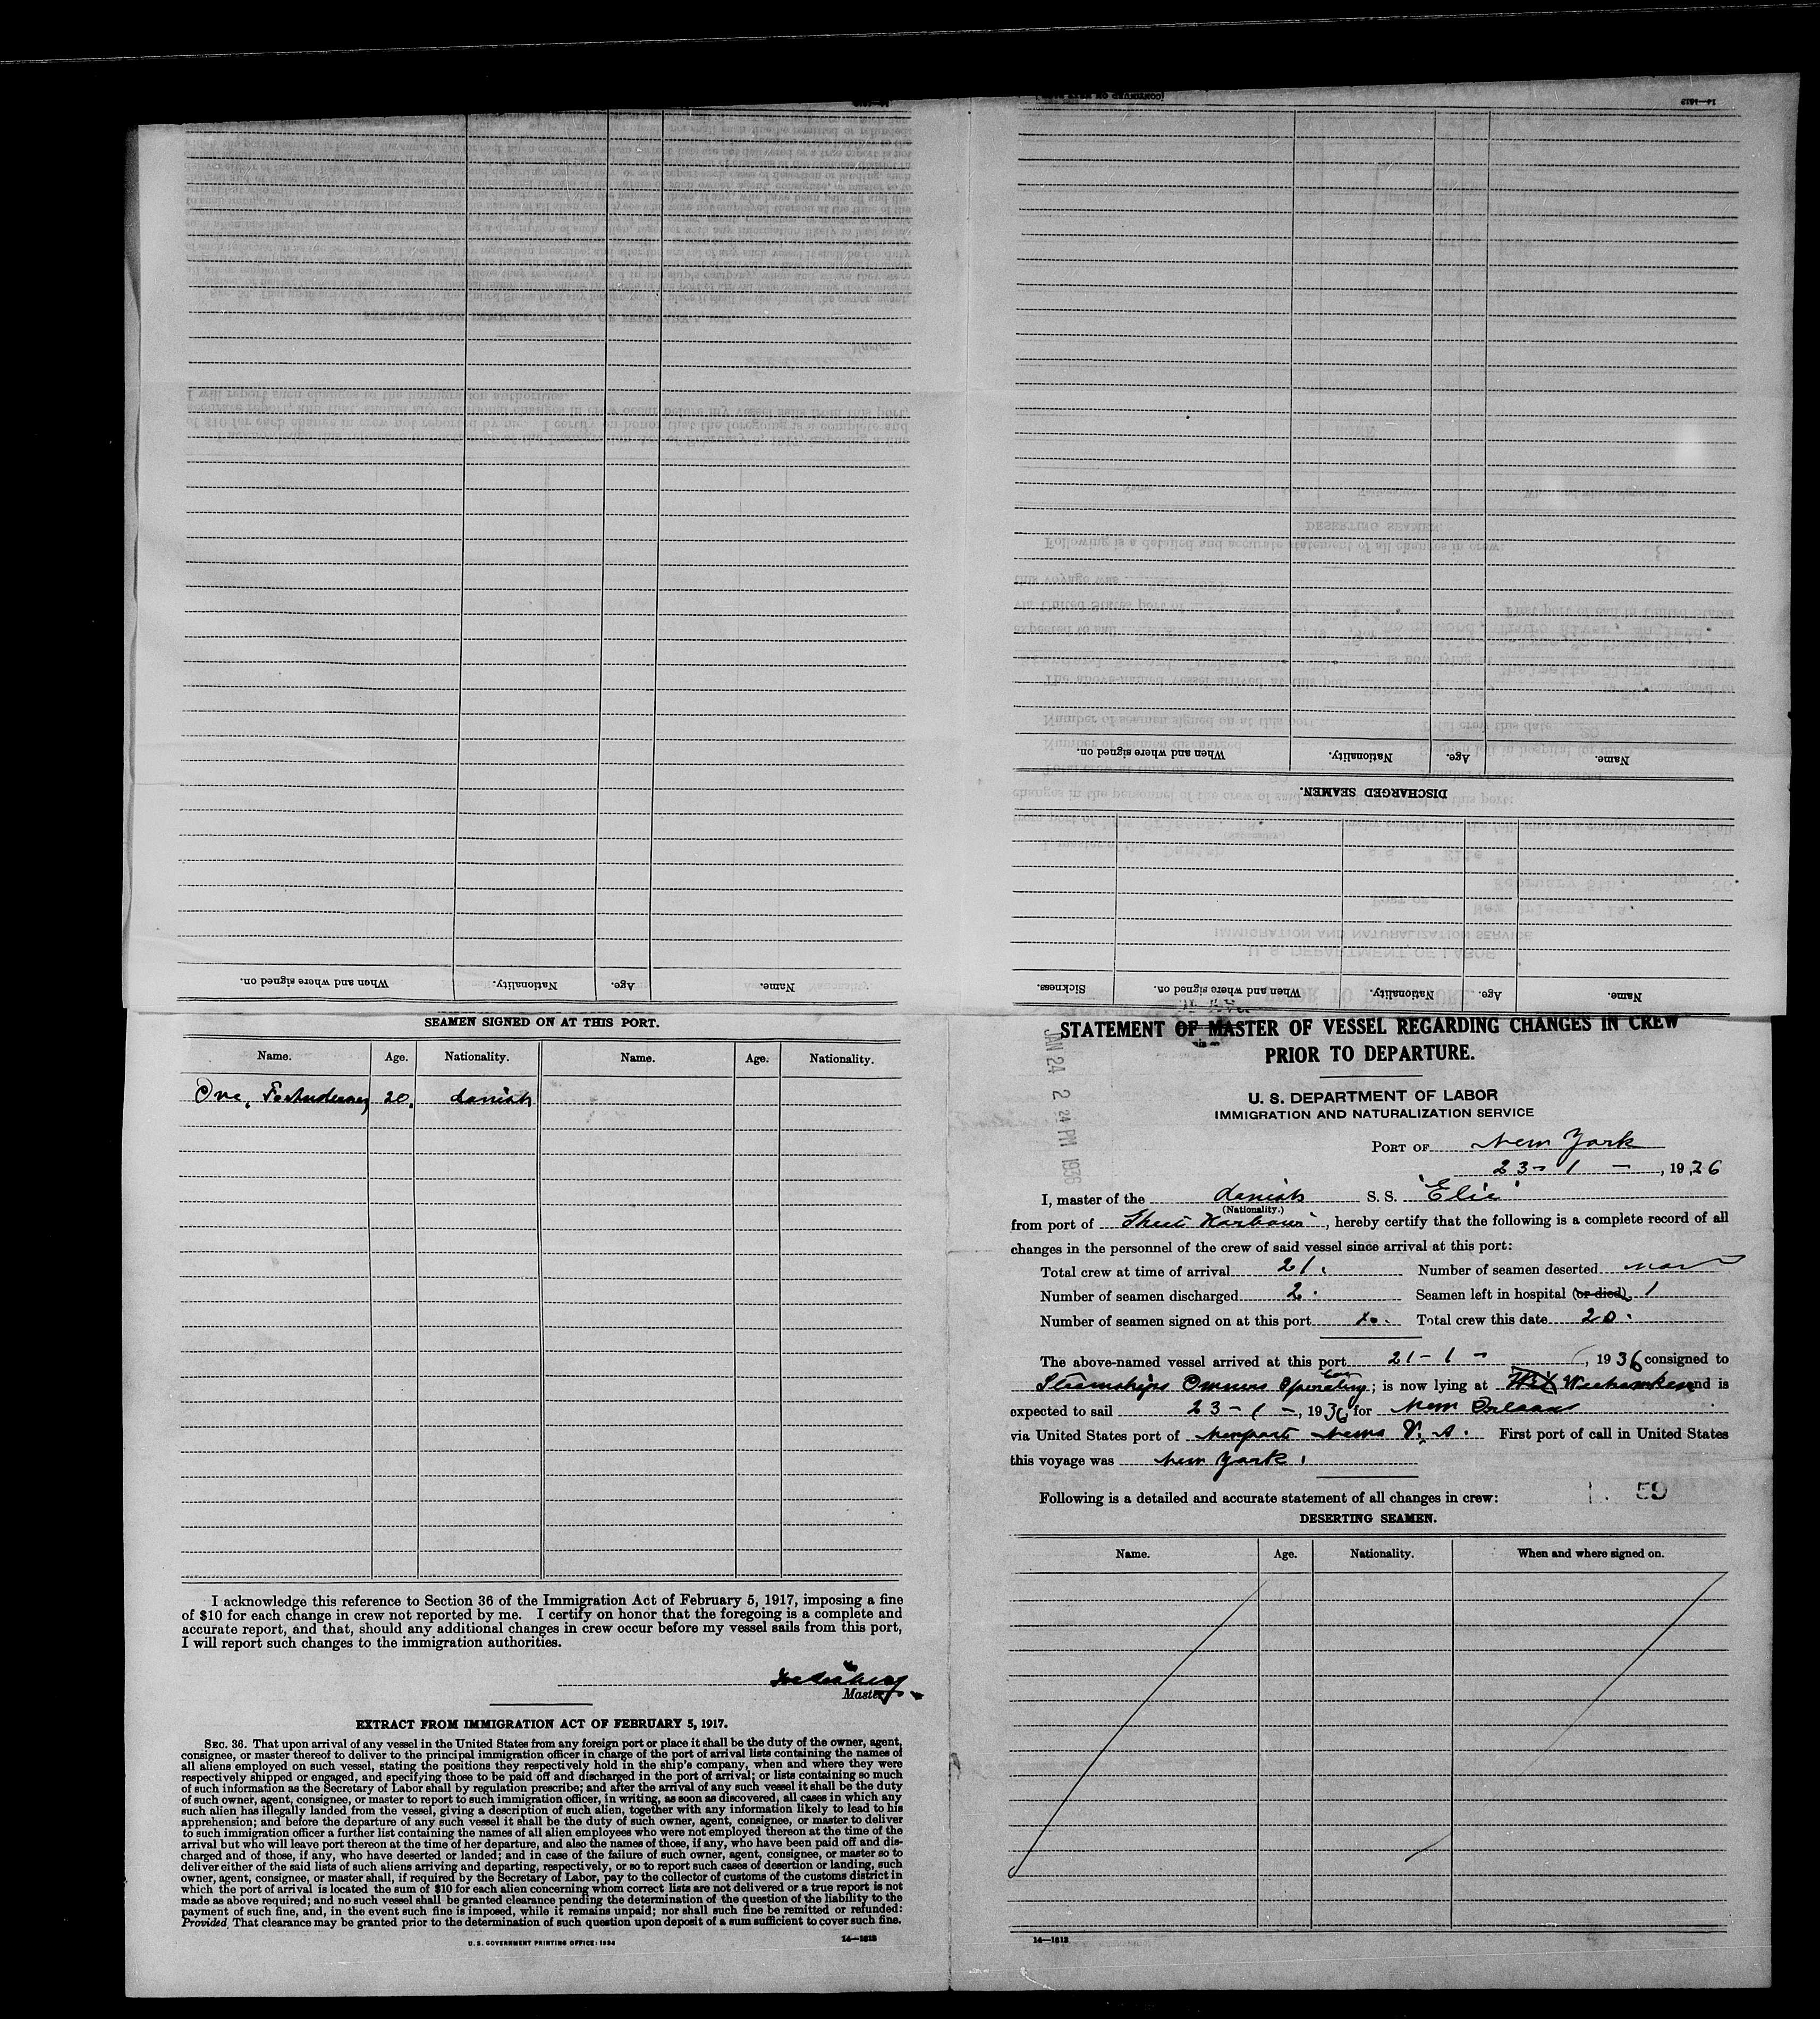 14—1613
Name.
Age.
Nationality.
When and where signed on.
DISCHARGED SEAMEN.
Name.
Age.
Nationality.
When and where signed on.
Sickness.
Name.
Age.
Nationality.
When and where signed on.
SEAMEN SIGNED ON AT THIS PORT.
Name. Age. Nationality. Name. Age. Nationality.
Ove, 20. danish
I acknowledge this reference to Section 36 of the Immigration Act of February 5, 1917, imposing a fine
of $10 for each change in crew not reported by me. I certify on honor that the foregoing is a complete and
accurate report, and that, should any additional changes in crew occur before my vessel sails from this port,
I will report such changes to the immigration authorities.
Master.
EXTRACT FROM IMMIGRATION ACT OF FEBRUARY 5, 1917.
SEC. 36. That upon arrival of any vessel in the United States from any foreign port or place it shall be the duty of the owner, agent,
consignee, or master thereof to deliver to the principal immigration officer in charge of the port of arrival lists containing the names of
all aliens employed on such vessel, stating the positions they respectively hold in the ship's company, when and where they were
respectively shipped or engaged, and specifying those to be paid off and discharged in the port of arrival; or lists containing so much
of such information as the Secretary of Labor shall by regulation prescribe; and after the arrival of any such vessel it shall be the duty
of such owner, agent, consignee, or master to report to such immigration officer, in writing, as soon as discovered, all cases in which any
such alien has illegally landed from the vessel, giving a description of such alien, together with any information likely to lead to his
apprehension; and before the departure of any such vessel it shall be the duty of such owner, agent, consignee, or master to deliver
to such immigration officer a further list containing the names of all alien employees who were not employed thereon at the time of the
arrival but who will leave port thereon at the time of her departure, and also the names of those, if any, who have been paid off and dis-
charged and of those, if any, who have deserted or landed; and in case of the failure of such owner, agent, consignee, or master so to
deliver either of the said lists of such aliens arriving and departing, respectively, or so to report such cases of desertion or landing, such
owner, agent, consignee, or master shall, if required by the Secretary of Labor, pay to the collector of customs of the customs district in
which the port of arrival is located the sum of $10 for each alien concerning whom correct lists are not delivered or a true report is not
made as above required; and no such vessel shall be granted clearance pending the determination of the question of the liability to the
payment of such fine, and, in the event such fine is imposed, while it remains unpaid; nor shall such fine be remitted or refunded:
Provided, That clearance may be granted prior to the determination of such question upon deposit of a sum sufficient to cover such fine.
U. S. GOVERNMENT PRINTING OFFICE: 1934 14—1613
STATEMENT OF MASTER OF VESSEL REGARDING CHANGES IN CREW
PRIOR TO DEPARTURE.
JAN 24 2 24 PM 1936
U. S. DEPARTMENT OF LABOR
IMMIGRATION AND NATURALIZATION SERVICE
PORT OF New York
23-1-, 1936
I, master of the danish S. S. "Elie"
(Nationality.)
from port of Sheet Harbour, hereby certify that the following is a complete record of all
changes in the personnel of the crew of said vessel since arrival at this port:
Total crew at time of arrival 21. Number of seamen deserted
Number of seamen discharged 2. Seamen left in hospital (or died) 1
Number of seamen signed on at this port Total crew this date 20.
The above-named vessel arrived at this port 21-1-, 1936 consigned to
Steamships Owners Operating Con; is now lying at Weehawken and is
expected to sail 23-1-, 1936 for New Orleans
via United States port of Newport News V. A. First port of call in United States
this voyage was New York.
Following is a detailed and accurate statement of all changes in crew: 59
DESERTING SEAMEN.
Name. Age. Nationality. When and where signed on.
14—1613